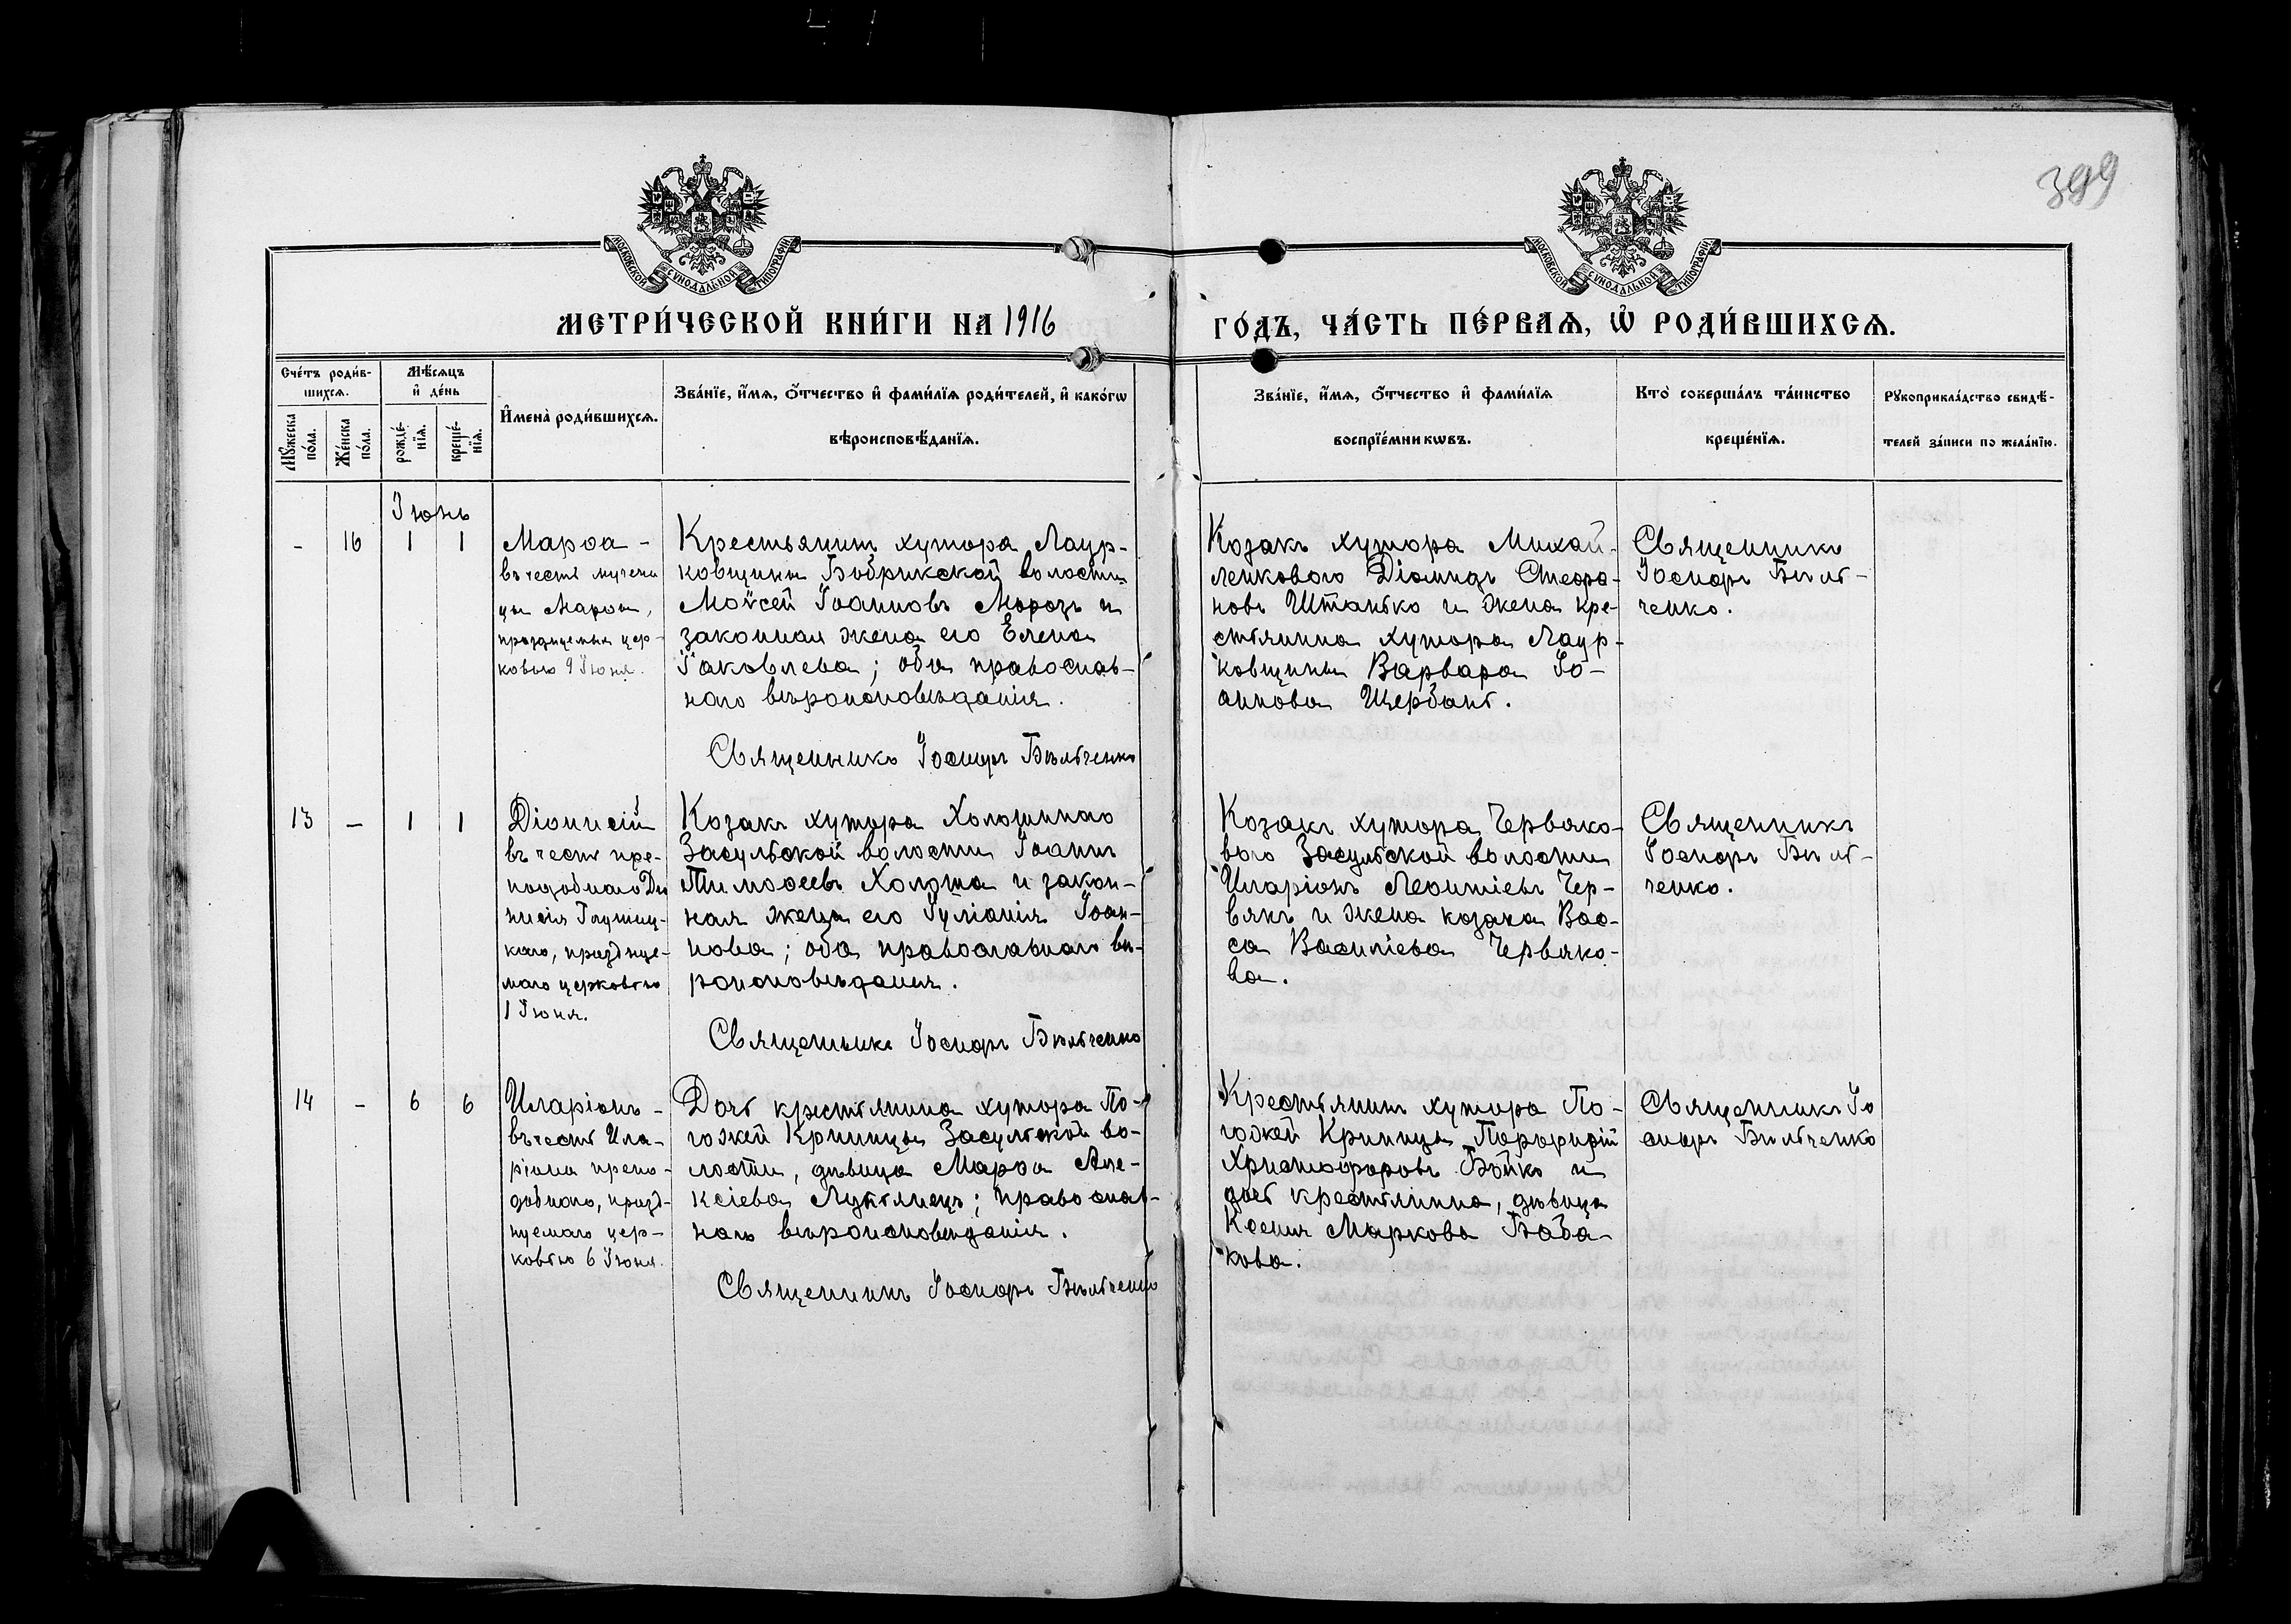 399
МОСКОВСКОЙ СѴНОДАЛЬНОЙ ТИПОГРАФІИ
МОСКОВСКОЙ СѴНОДАЛЬНОЙ ТИПОГРАФІИ
МЕТРИ́ЧЕСКОЙ КНИ́ГИ НА 1916
ГО́ДЪ, ЧА́СТЬ ПЕ́РВАѦ, Ѡ҆ РОДИ́ВШИХСѦ.
Сче́тъ роди́в-
шихсѧ.
Мѣ́сѧцъ
и҆ де́нь
Мꙋ́жеска
по́ла.
Же́нска
по́ла.
рожде́-
нїѧ.
креще́-
нїѧ.
И҆мена̀ роди́вшихсѧ.
Зва́нїе, и҆́мѧ, ѻ҆́тчество и҆ фами́лїѧ роди́телей, и҆ како́гѡ
вѣроисповѣ́данїѧ.
Зва́нїе, и҆́мѧ, ѻ҆́тчество и҆ фами́лїѧ
воспрїе́мникѡвъ.
Кто̀ соверша́лъ та́инство
креще́нїѧ.
Рꙋкоприкла́дство свидѣ́-
телей за́писи по жела́нїю.
Іюнь
- 16 1 1
Марѳа -
въ честь мучени
цы Марѳы,
празднуемыя цер-
ковью 9 Іюня.
Крестьянинъ хутора Лаур-
ковщины Бобрикской волости
Моѵсей Іоанновъ Морозъ и
законная жена его Елена
Іаковлева; оба православ-
наго вѣроисповѣданія.
Священникъ Іосифъ Бѣльченко
Козакъ хутора Михай-
ленкового Діомидъ Стефа-
новъ Штанько и жена кре-
стьянина хутора Лаур-
ковщины Варвара Іо-
аннова Щербань.
Священникъ
Іосифъ Бѣль-
ченко.
13 - 1 1
Діонисій
въ честь пре-
подобнаго Діо
нисія Глушиц-
каго, праздные-
маго церковью
1 Іюня.
Козакъ хутора Холошиного
Засульской волости Іоаннъ
Тимоѳеевъ Холоша и закон-
ная жена его Іуліанія Іоан-
нова; оба православнаго вѣ-
роисповѣданія.
Священникъ Іосифъ Бѣльченко
Козакъ хутора Червяко-
вого Засульской волости
Иларіонъ Леонтіевъ Чер-
вякъ и жена козака Вас-
са Василіева Червяко-
ва.
Священникъ
Іосифъ Бѣль-
ченко.
14 - 6 6
Иларіонъ -
въ честь Ила-
ріона препо-
добнаго, празд-
нуемаго цер-
ковью 6 Іюня.
Дочь крестьянина хутора По-
гожей Криницы Засульской во-
лости, дѣвица Марѳа Але-
ксіева Лукьянецъ; православ-
наго вѣроисповѣданія.
Священникъ Іосифъ Бѣльченко
Крестьянинъ хутора По-
гожей Криницы Порфирій
Христофоровъ Бойко и
дочь крестьянина, дѣвица
Ксенія Маркова Баба-
кова.
Священникъ Іо
сифъ Бѣльченко